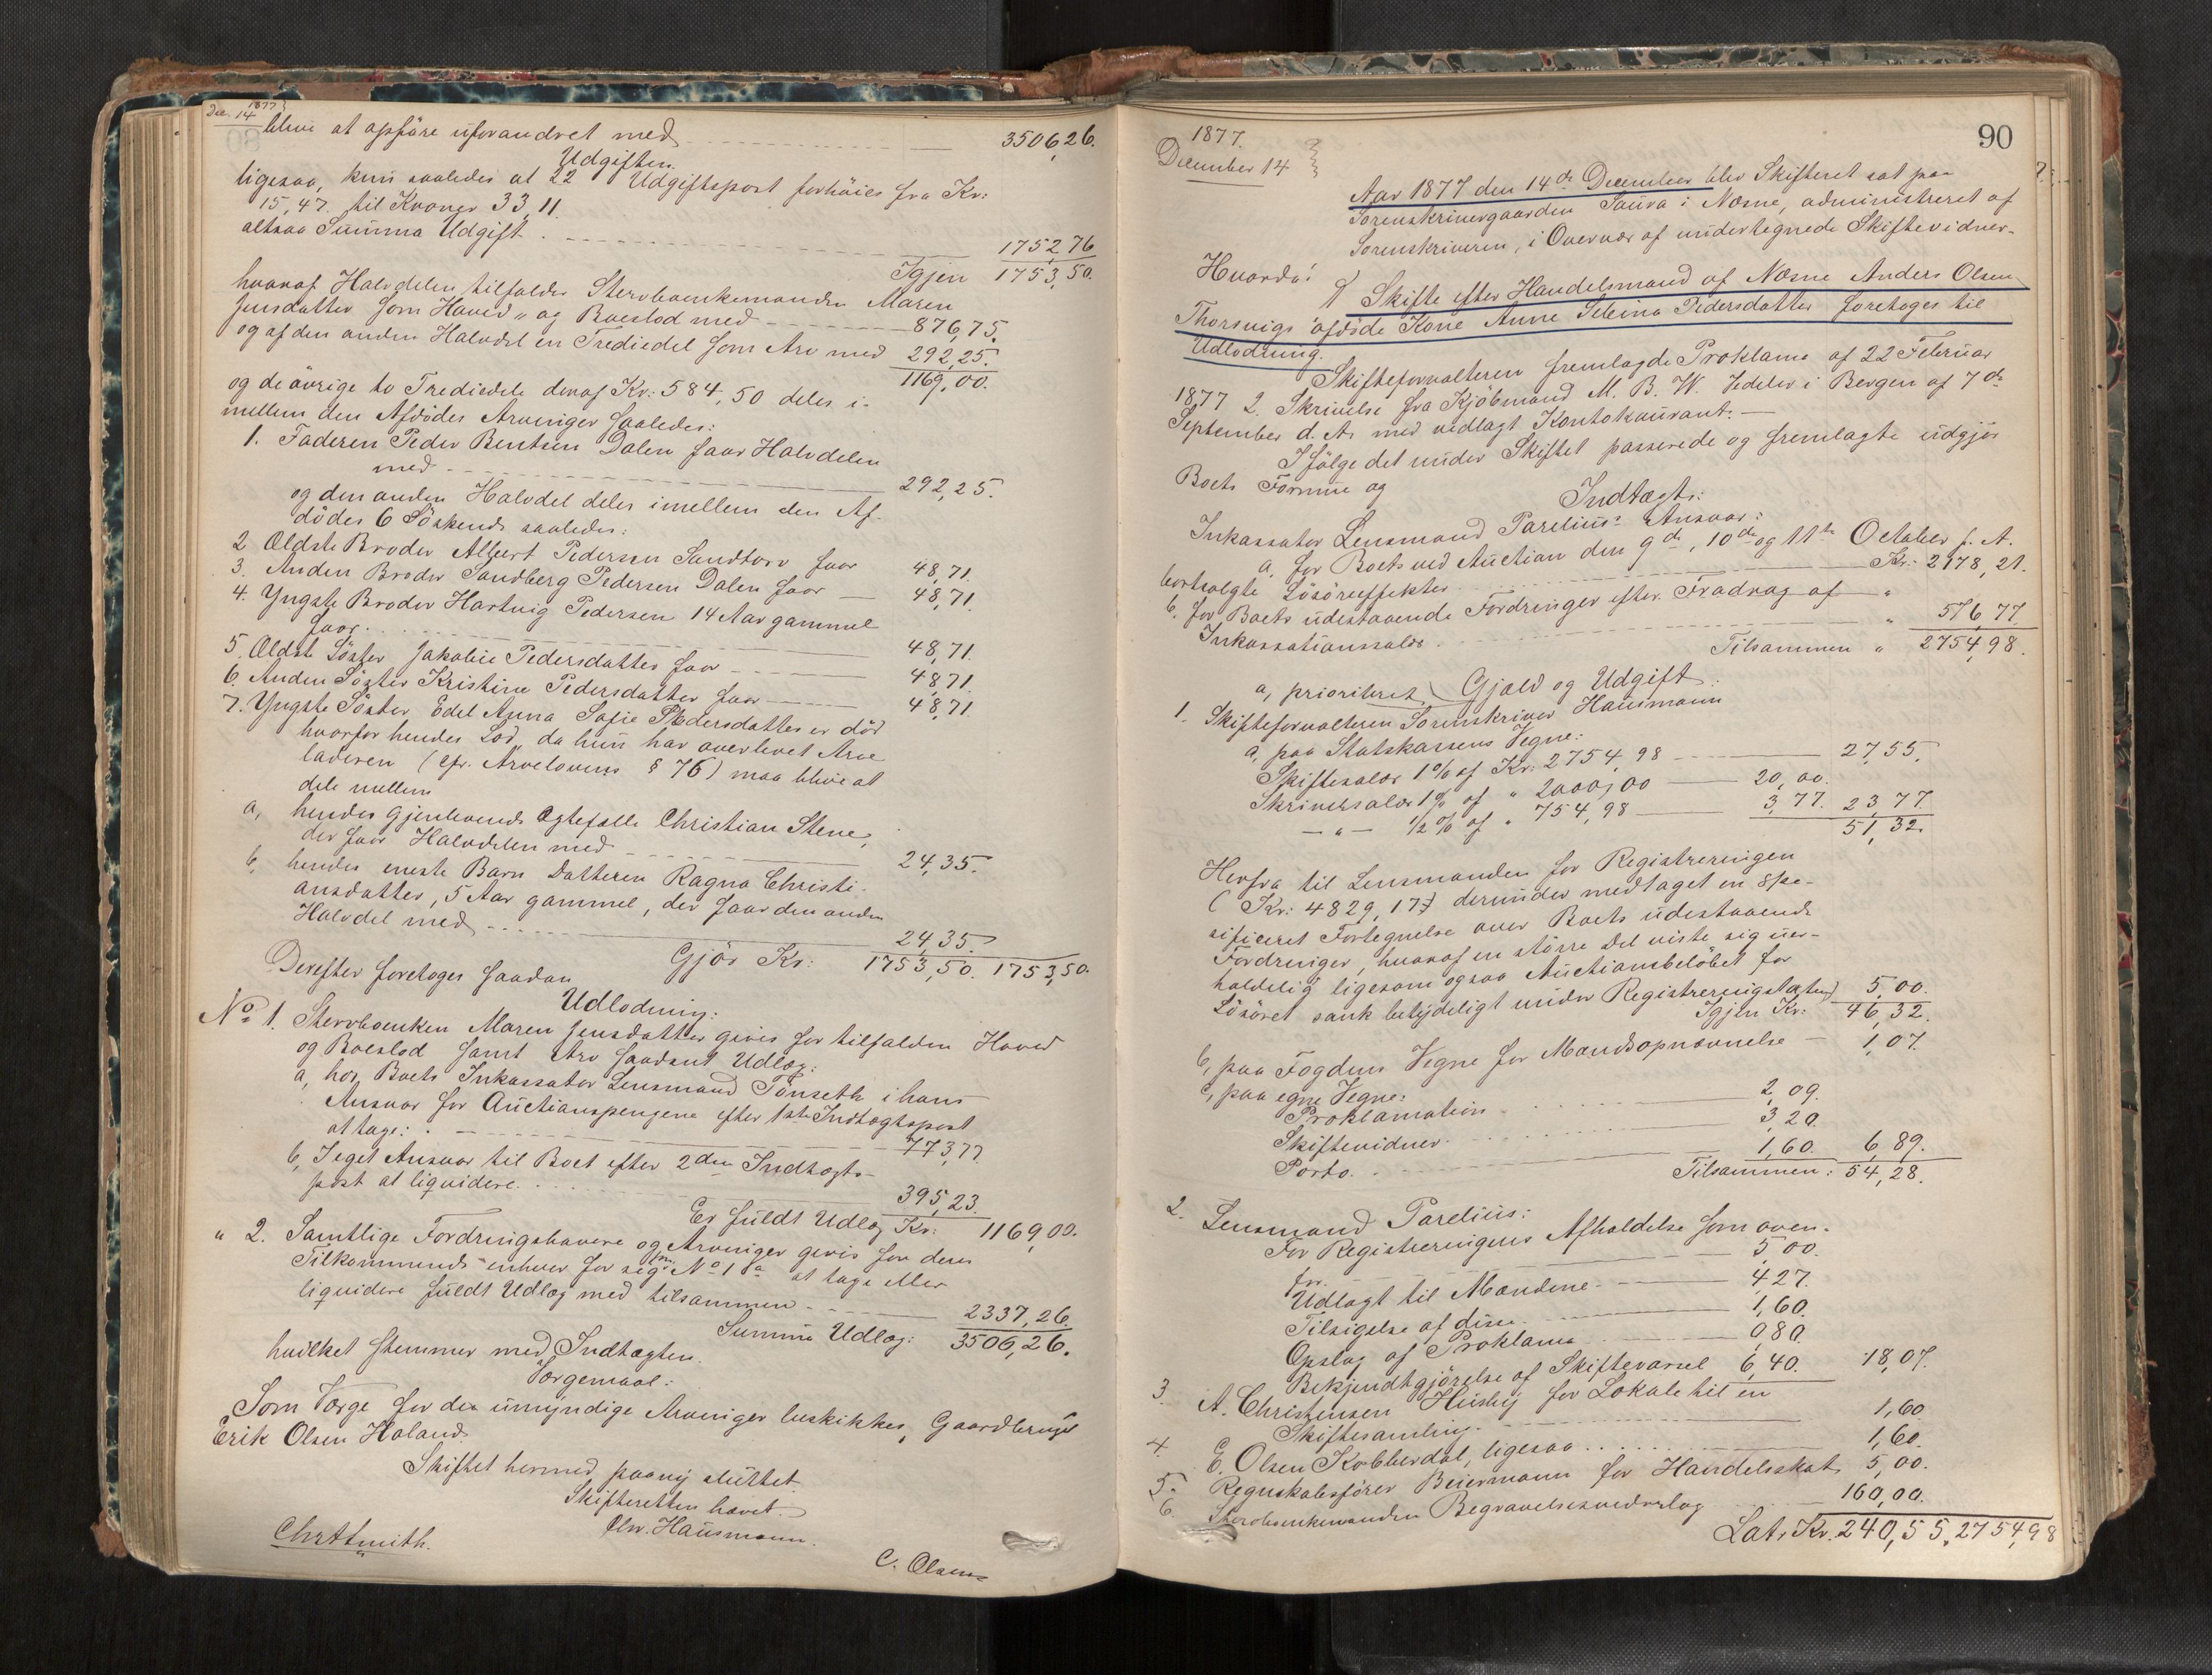 1877
Dec. 14
blive at opføre uforandret med 3506,26.
Udgiften
ligesaa, kun saaledes at 22 Udgiftspost forhøies fra Kr:
15,47. til Kroner 33,11.
altsaa Summa Udgift 1752,76
Igjen 1753,50.
hvoraf Halvdelen tilfalder Stervboenkemanden Maren
Jensdatter som Hoved- og Boeslod med 876,75.
og af den anden Halvdel en Trediedel som Arv med 292,25.
1169,00.
og de øvrige to Trediedele deraf Kr: 584,50 deles i-
mellem den Afdødes Arvinger saaledes:
1. Faderen Peder Bentsen Dalen faar Halvdelen
med 292,25.
og den anden Halvdel deles imellem den Af-
dødes 6 Søskende saaledes:
2 Ældste Broder Albert Pedersen Sandtorv faar 48,71.
3. Anden Broder Sandberg Pedersen Dalen faar 48,71.
4. Yngste Broder Hartvig Pedersen 14 Aar gammel
faar 48,71.
5. Ældste Søster Jakobie Pedersdatter faar 48,71.
6. Anden Søster Kristine Pedersdatter faar 48,71.
7. Yngste Søster Edel Anna Sofie Pedersdatter er død
hvorfor hendes Lod, da hun har overlevet Arve
laderen (cfr. Arvelovens § 76) maa blive at
dele mellem
a, hendes gjenlevende Ægtefælle Christian Stene,
der faar Halvdelen med 24,35.
b, hendes eneste Barn Datteren Ragna Christi-
ansdatter, 5 Aar gammel, der faar den anden
Halvdel med 24,35.
Gjør Kr: 1753,50. 1753,50.
Derefter foretoges saadan
Udlodning:
No 1. Stervboenken Maren Jensdatter gives for tilfalden Hoved
og Boeslod samt Arv saadant Udlæg:
a, hos Boets Inkassator Lensmand Tønseth i hans
Ansvar for Auctionspengene efter 1ste Indtægtspost
at tage: 773,77.
b, I eget Ansvar til Boet efter 2den Indtægts-
post at liqvidere. 395,23.
Er fuldt Udlæg Kr: 1169,00.
" 2. Samtlige Fordringshavere og Arvinger gives for deres
Tilkommende enhver for sig som No 1 a at tage eller
liqvidere fuldt Udlæg med tilsammen 2337,26.
Summa Udlæg: 3506,26.
hvilket stemmer med Indtægten.
Værgemaal:
Som Værge for de umyndige Arvinger beskikkes, Gaardbruger
Erik Olsen Haland.
Skiftet hermed paany sluttet.
Skifteretten hævet.
Chr. Hausmann.
Chr A Smith.
C. Olsen
90
1877.
December 14
Aar 1877 den 14de December blev Skifteret sat paa
Sorenskrivergaarden Saura i Næsne, administreret af
Sorenskriveren, i Overvær af undertegnede Skiftevidner.
Hvorda:
Skifte efter Handelsmand af Næsne Anders Olsen
Thorsvigs afdøde Kone Anne Sibina Pedersdatter foretoges til
Udlodning.
Skifteforvalteren fremlagde Proklama af 22 Februar
1877 2. Skrivelse fra Kjøbmand M. B. W. Vedeler i Bergen af 7de
September d. A. med vedlagt Kontokourant.
Ifølge det under Skiftet passerede og fremlagte udgjør
Boets Formue og
Indtægt:
Inkassator Lensmand Parelius' Ansvar:
a, for Boets ved Auction den 9de, 10de og 11te October f. A.
bortsolgte Løsøreeffekter Kr: 2178,21.
b. for Boets udestaaende Fordringer efter Fradrag af
Inkassationssalær " 576,77.
Tilsammen " 2754,98.
Gjæld og Udgift:
a, prioriteret
1. Skifteforvalteren Sorenskriver Hausmann
a, paa Statskassens Vegne:
Skiftesalær 1% af Kr: 2754,98 27,55.
Skriversalær 1% af " 2000,00 20,00.
— " — 1/2 % af " 754,98 3,77. 23,77.
51,32.
Herfra til Lensmanden for Registreringen
(Kr: 4829,17) derunder medtaget en spe-
sificeret Fortegnelse over Boets udestaaende
Fordringer, hvoraf en større Del viste sig uer-
holdelig ligesom ogsaa Auctionsbeløbet for
Løsøret sank betydeligt under Registreringstaxten) 5,00.
Igjen Kr: 46,32.
b, paa Fogdens Vegne for Mandsopnævnelse 1,07.
c, paa egne Vegne:
Proklamation 2,09.
Skiftevidner 3,20.
Porto 1,60. 6,89.
Tilsammen: 54,28.
2. Lensmand Parelius:
For Registreringens Afholdelse som oven-
for 5,00.
Udlagt til Mændene 4,27.
Tilsigelse af disse 1,60.
Opslag af Proklama 0,80.
Bekjendtgjørelse af Skiftevarsel 6,40. 18,07.
3. A. Christensen Husby for Lokale til en
Skiftesamling 1,60.
4. E. Olsen Kobberdal, ligesaa 1,60.
5. Regnskabsfører Beiermann for Handelsskat 5,00.
6. Stervboenkemanden Begravelsesvederlag 160,00.
Lat. Kr. 240,55. 2754,98